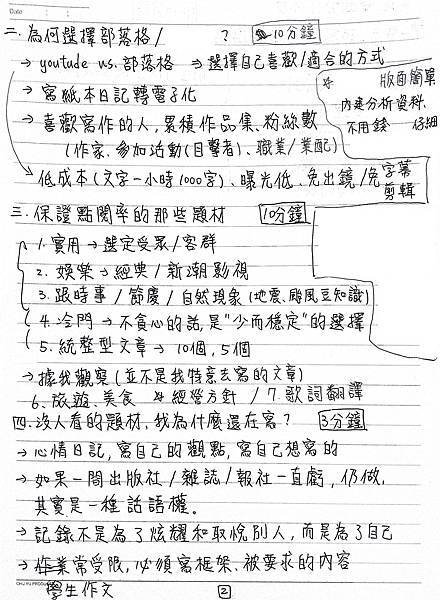 Date
二. 為何選擇部落格/ ? 10分鐘
→ youtube vs. 部落格 → 選擇自己喜歡/適合的方式
☆ 版面簡單
內建分析資料、
不用錢 仔細
→ 寫紙本日記轉電子化
→ 喜歡寫作的人,累積作品集、粉絲數
(作家、參加活動(目擊者)、職業/業配)
→ 低成本(文字一小時1000字)、曝光低、免出鏡/免字幕
剪輯
三. 保證點閱率的那些題材 10分鐘
1. 實用 → 選定受眾/客群
2. 娛樂 → 經典/新潮影視
3. 跟時事/節慶/自然現象(地震、颱風豆知識)
4. 冷門 → 不貪心的話,是"少而穩定"的選擇
5. 統整型文章 → 10個,5個
→ 據我觀察(並不是我特意去寫的文章)
6. 旅遊、美食 ☆ 經營方針 / 7. 歌詞翻譯
四. 沒人看的題材,我為什麼還在寫? 3分鐘
→ 心情日記,寫自己的觀點,寫自己想寫的
→ 如果一間出版社/雜誌/報社一直虧,仍做.
其實是一種話語權.
→ 記錄不是為了炫耀和取悅別人,而是為了自己
→ 作業常受限,必須寫框架、被要求的內容
學生作文
2